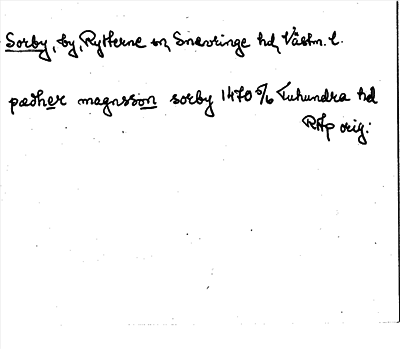 Sorby, by, Rytterne sn, Snevringe hd, Västm. l.
padher magnsson sorby 1470 5/6 Tuhundra hd
RAp orig: